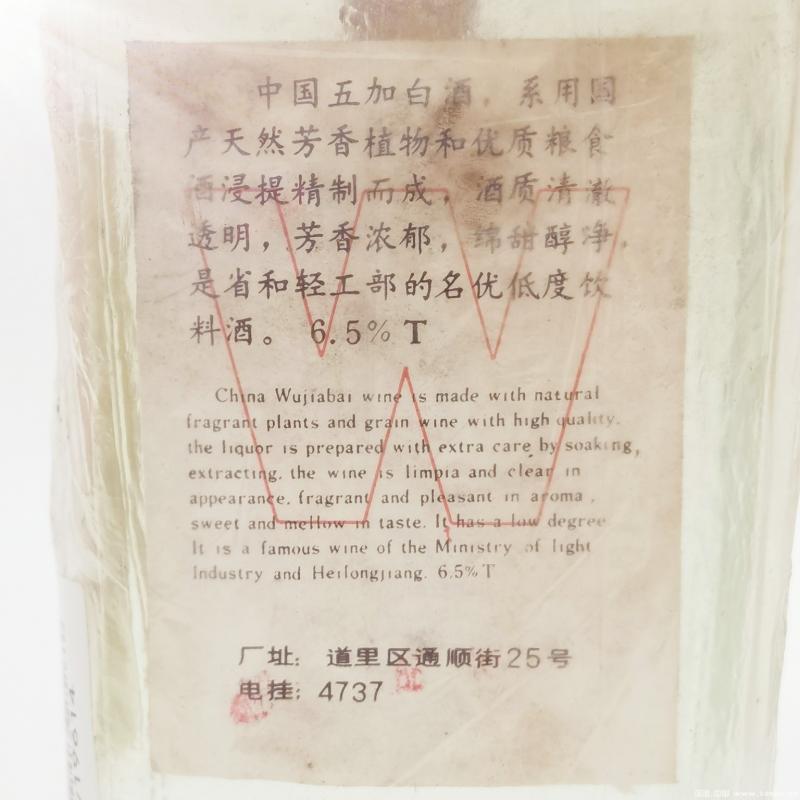 中国五加白酒，系用国
产天然芳香植物和优质粮食
酒浸提精制而成，酒质清澈
透明，芳香浓郁，绵甜醇净，
是省和轻工部的名优低度饮
料酒。 6.5% T
China Wujiabai wine is made with natural
fragrant plants and grain wine with high quality.
the liquor is prepared with extra care by soaking,
extracting, the wine is limpia and clear in
appearance, fragrant and pleasant in aroma,
sweet and mellow in taste. It has a low degree
It is a famous wine of the Ministry of light
Industry and Heilongjiang. 6.5% T
厂址：道里区通顺街25号
电挂：4737